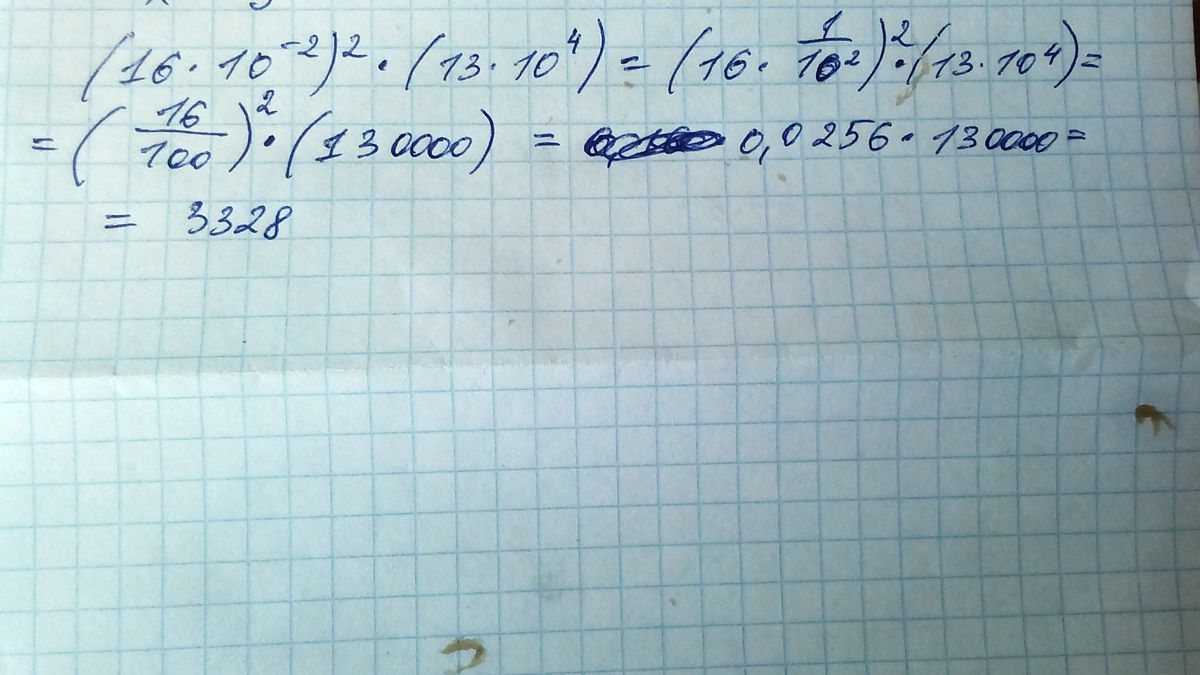 (16·10⁻²)²·(13·10⁴)=(16·1/10²)²·(13·10⁴)=
=(16/100)²·(130000)=0,0256·130000=
= 3328